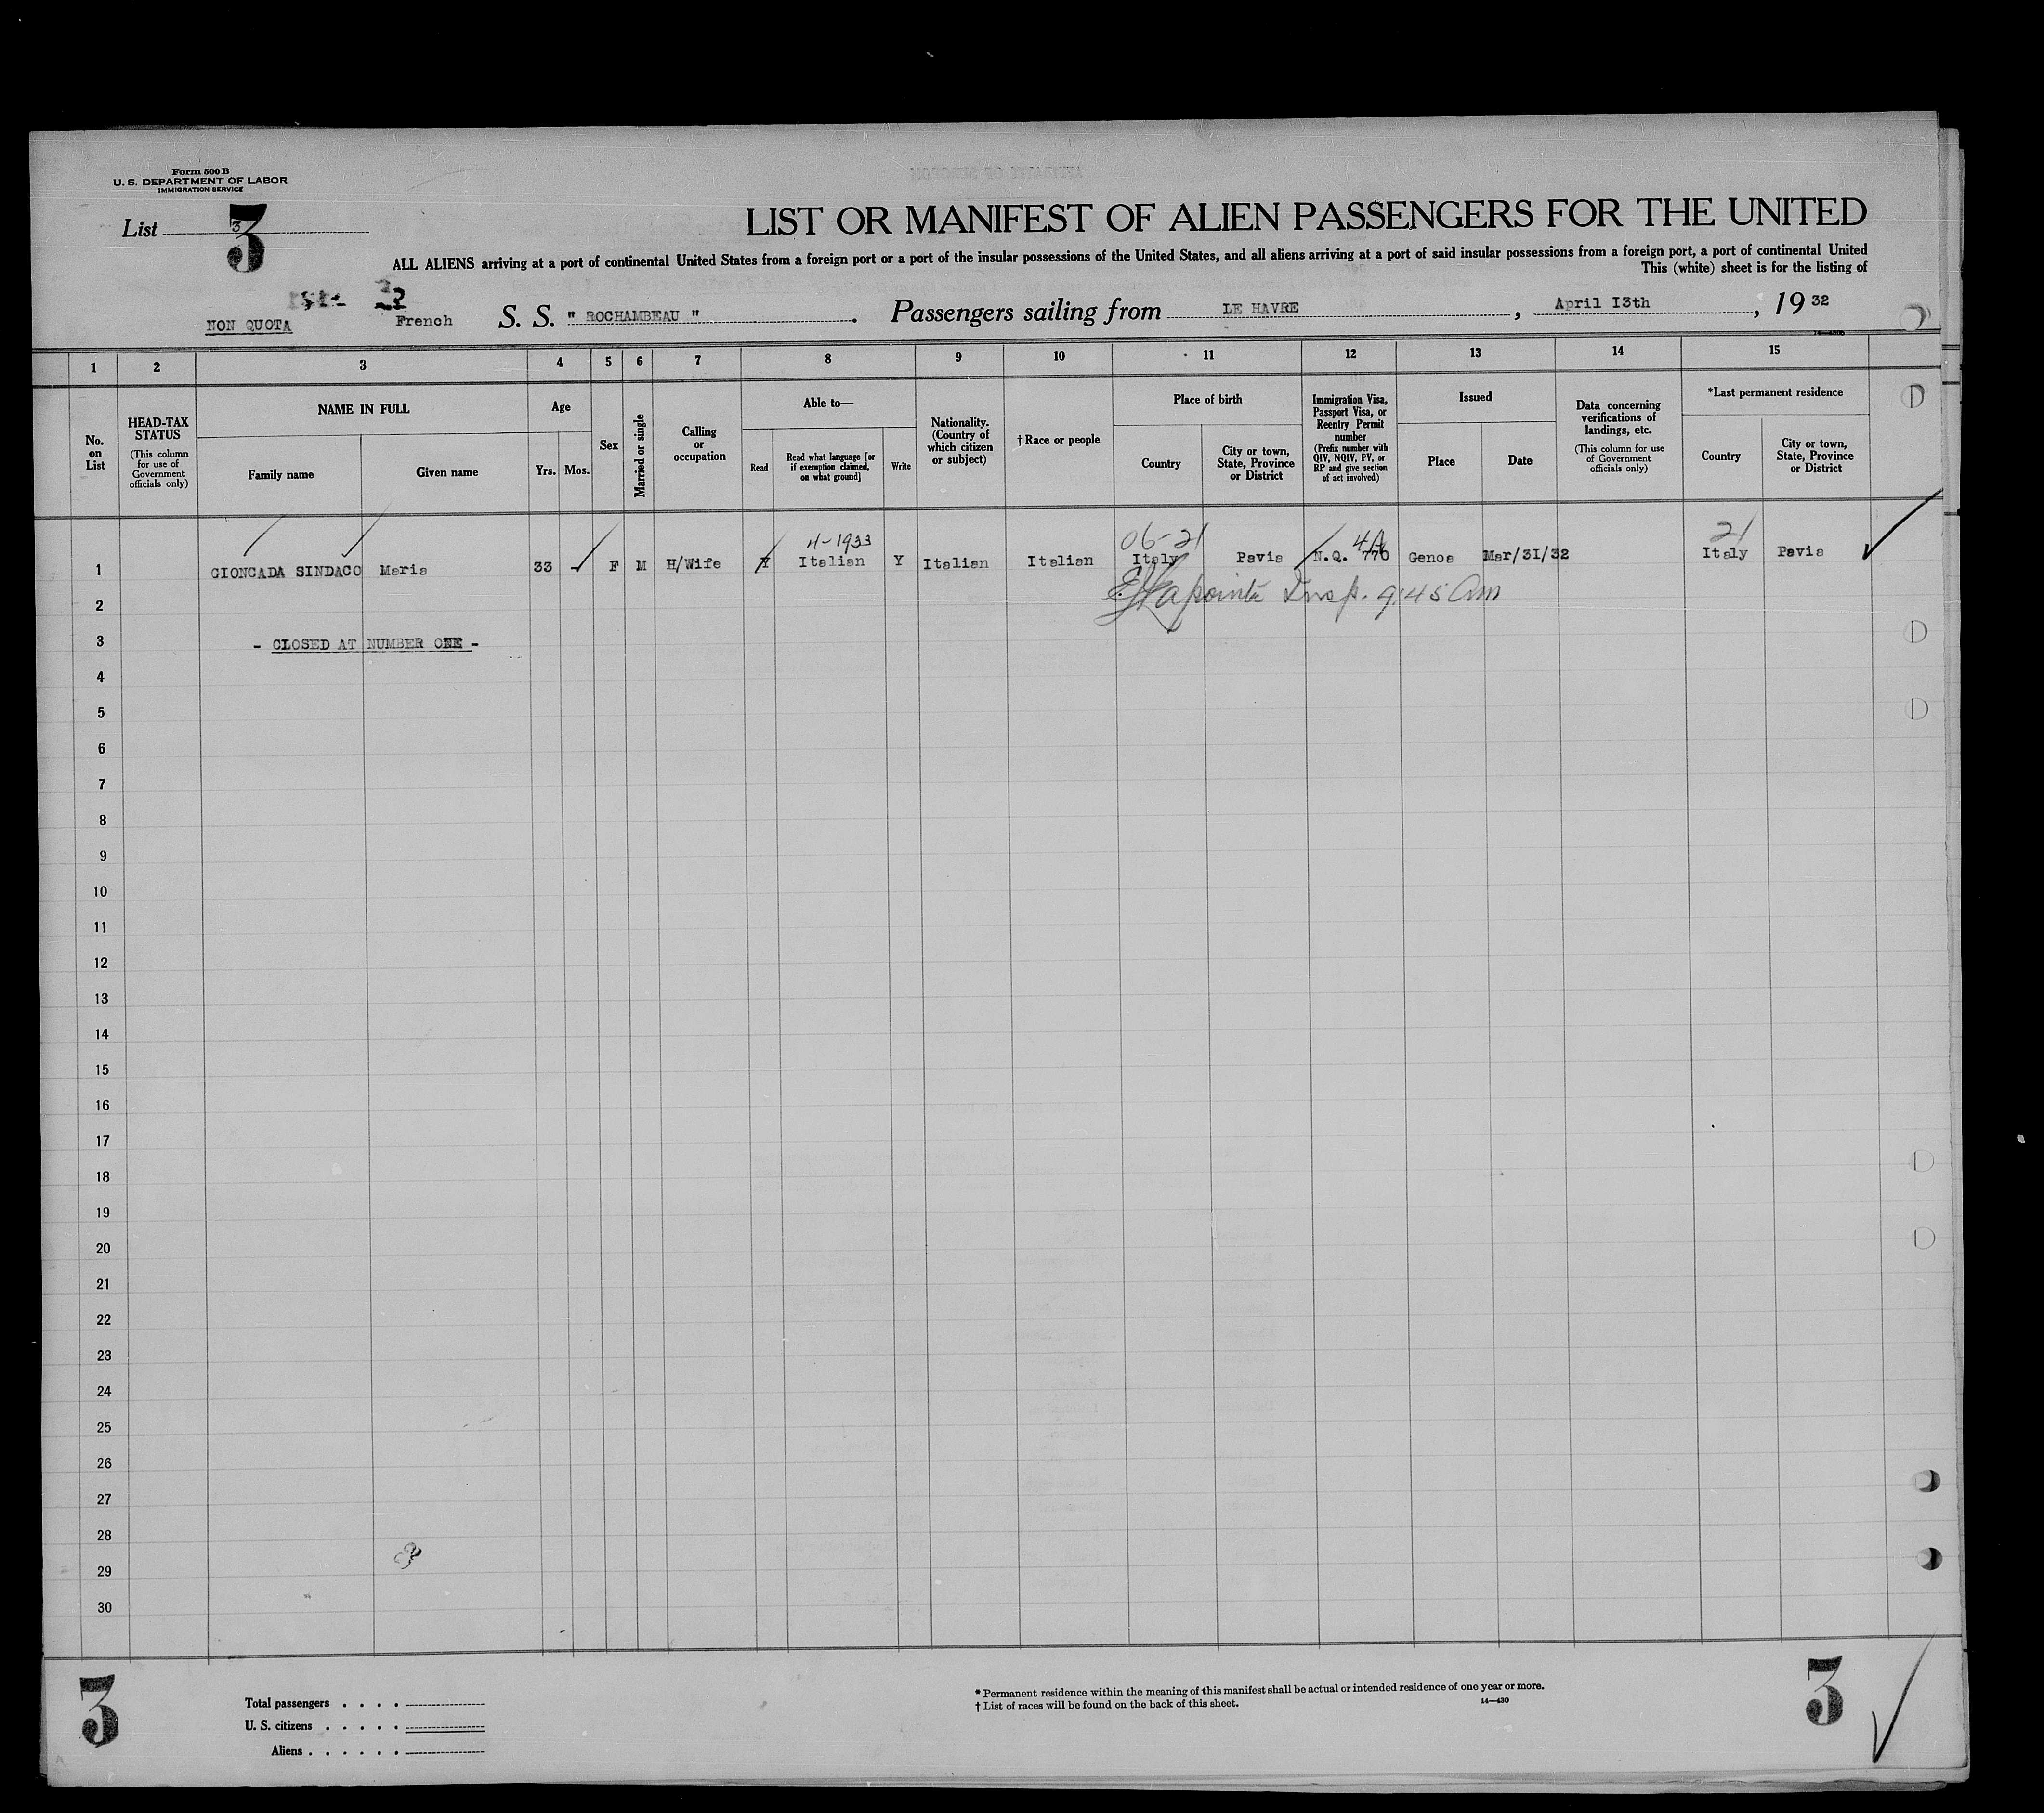 Form 500 B
U. S. DEPARTMENT OF LABOR
IMMIGRATION SERVICE
List 3
3
LIST OR MANIFEST OF ALIEN PASSENGERS FOR THE UNITED
ALL ALIENS arriving at a port of continental United States from a foreign port or a port of the insular possessions of the United States, and all aliens arriving at a port of said insular possessions from a foreign port, a port of continental United
This (white) sheet is for the listing of
NON QUOTA French S. S. " ROCHAMBEAU ". Passengers sailing from LE HAVRE, April I3th, 19 32
1 2 3 4 5 6 7 8 9 10 11 12 13 14 15
No. on List
HEAD-TAX STATUS (This column for use of Government officials only)
NAME IN FULL
Family name Given name
Age
Yrs. Mos.
Sex
Married or single
Calling or occupation
Able to—
Read
Read what language [or if exemption claimed, on what ground]
Write
Nationality. (Country of which citizen or subject)
† Race or people
Place of birth
Country
City or town, State, Province or District
Immigration Visa, Passport Visa, or Reentry Permit number (Prefix number with QIV, NQIV, PV, or RP and give section of act involved)
Issued
Place Date
Data concerning verifications of landings, etc. (This column for use of Government officials only)
*Last permanent residence
Country
City or town, State, Province or District
4-1933 06-21 4A 21
1 GIONCADA SINDACO Maria 33 - F M H/Wife Y Italian Y Italian Italian Italy Pavia N.Q. 770 Genoa Mar/3I/32 Italy Pavia
Lapointe Insp. 9:45 am
2
3 - CLOSED AT NUMBER ONE -
4
5
6
7
8
9
10
11
12
13
14
15
16
17
18
19
20
21
22
23
24
25
26
27
28
29
30
3
Total passengers . . . .
U. S. citizens . . . . .
Aliens . . . . . .
* Permanent residence within the meaning of this manifest shall be actual or intended residence of one year or more.
† List of races will be found on the back of this sheet.
14—430
3